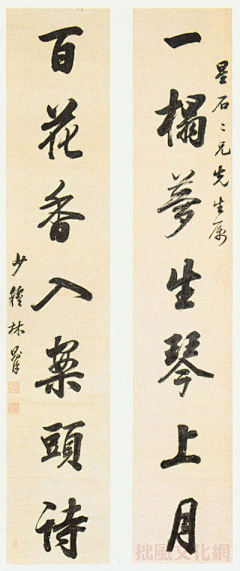 星石二兄先生属
一榻夢生琴上月
百花香入案頭詩
少穆林則徐
拙風文化網